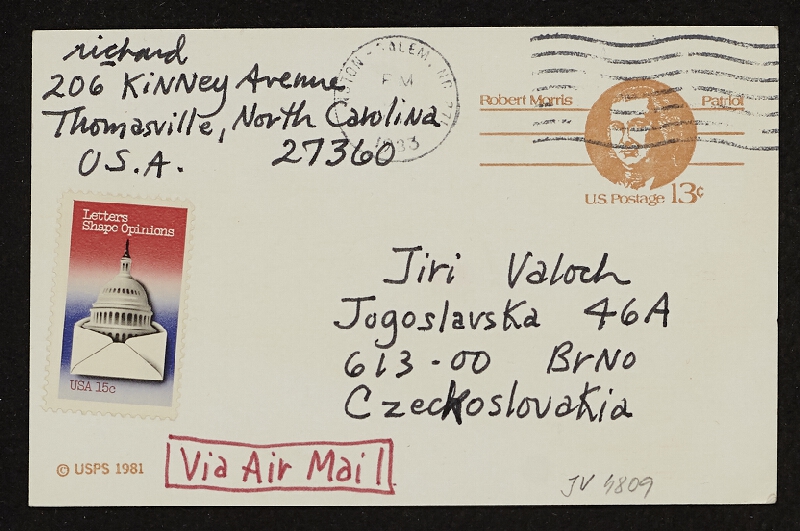 richard
206 KiNNey Avenue
Thomasville, North Carolina
U.S.A. 27360
SALEM, NC
PM
1983
Robert Morris Patriot
U.S. Postage 13¢
Letters
Shape Opinions
USA 15c
Jiri Valoch
Jogoslavska 46A
613-00 BrNo
Czeckoslovakia
© USPS 1981
Via Air Mail
JV 4809